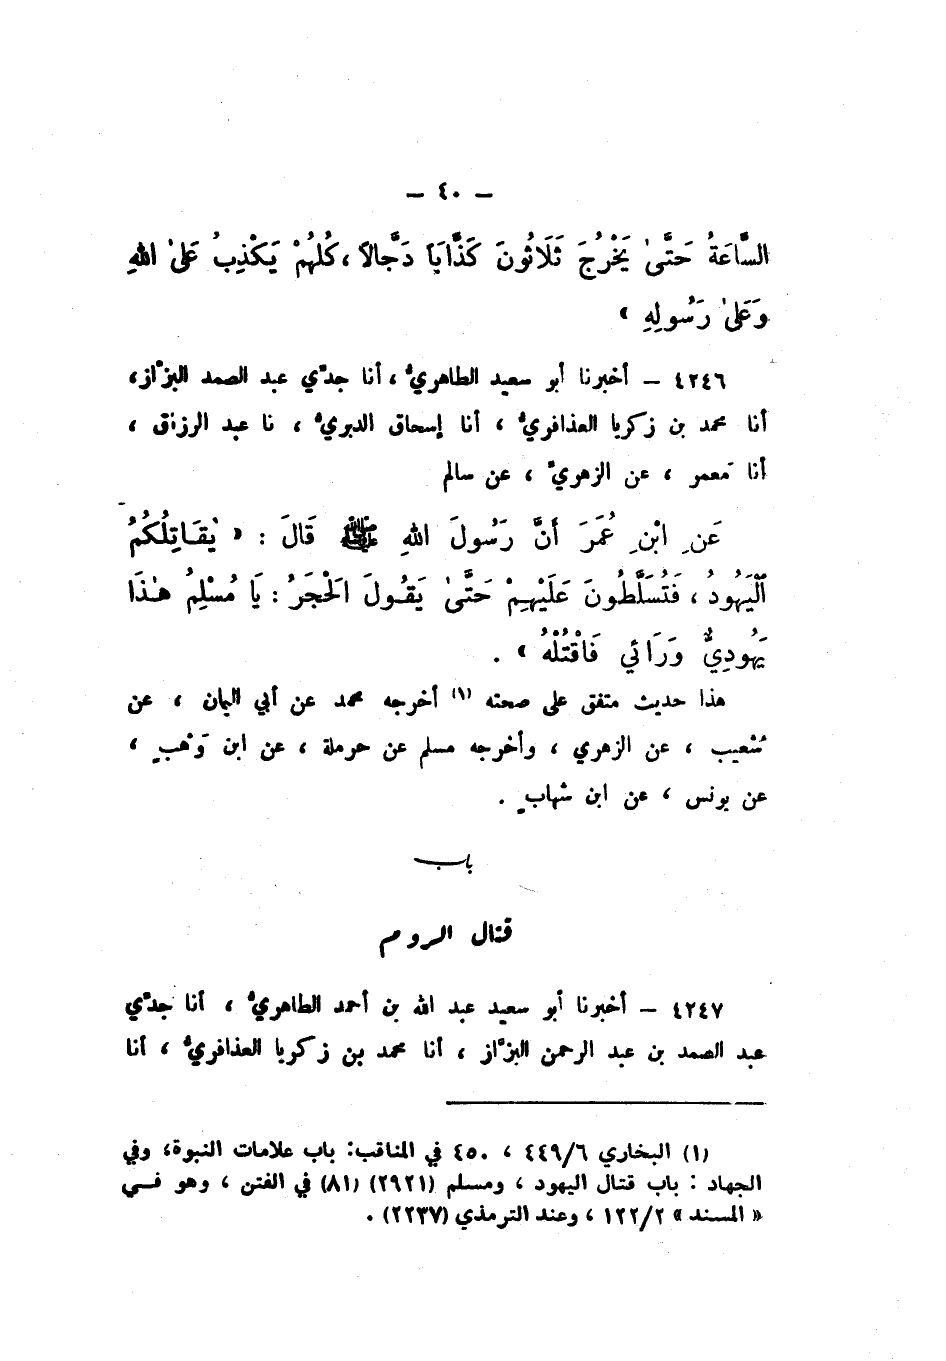 — ٤٠ —
السَّاعَةُ حَتَّىٰ يَخْرُجَ ثَلَاثُونَ كَذَّابًا دَجَّالاً ، كُلهُمْ يَكْذِبُ عَلىٰ اللهِ
وَعَلىٰ رَسُولِهِ »
٤٢٤٦ — أخبرنا أبو سعيد الطاهريُّ ، أنا جدّي عبد الصمد البزَّاز ،
أنا محمد بن زكريا العذافريُّ ، أنا إسحاق الدبريُّ ، نا عبد الرزاق ،
أنا مَعمر ، عن الزهريِّ ، عن سالم
عَنِ ابْنِ عُمَرَ أَنَّ رَسُولَ اللهِ ﷺ قَالَ : « يُقَاتِلُكُمُ
الْيَهُودُ ، فَتُسَلَّطُونَ عَلَيْهِمْ حَتَّىٰ يَقُولَ الْحَجَرُ : يَا مُسْلِمُ هٰذَا
يَهُودِيٌّ وَرَائي فَاقْتُلْهُ » .
هذا حديث متفق على صحته (١) أخرجه محمد عن أبي اليمان ، عن
شُعيب ، عن الزهري ، وأخرجه مسلم عن حرملة ، عن ابن وَهْبٍ ،
عن يونس ، عن ابن شهابٍ .
باب
قتال الروم
٤٢٤٧ — أخبرنا أبو سعيد عبد الله بن أحمد الطاهريُّ ، أنا جدّي
عبد الصمد بن عبد الرحمن البزَّاز ، أنا محمد بن زكريا العذافريُّ ، أنا
(١) البخاري ٤٤٩/٦ ، ٤٥٠ في المناقب: باب علامات النبوة ، وفي
الجهاد : باب قتال اليهود ، ومسلم (٢٩٢١) (٨١) في الفتن ، وهو في
« المسند » ١٢٢/٢ ، وعند الترمذي (٢٢٣٧) .